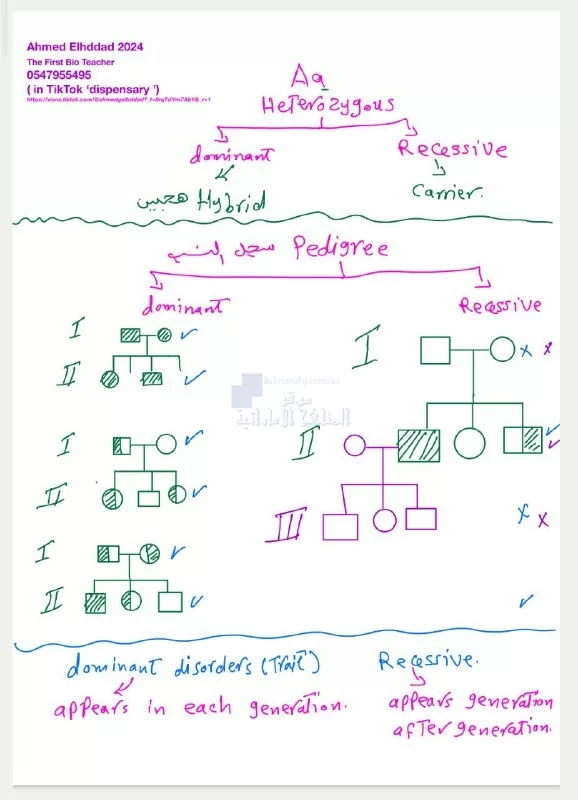 Ahmed Elhddad 2024
The First Bio Teacher
0547955495
( in TikTok ‘dispensary ’)
Aa
Heterozygous
dominant
Recessive
هجين Hybrid
Carrier.
سجل النسب Pedigree
dominant
Recessive
I
II
I
II
I
II
I
II
III
almanahj.com/ae
موقع
المناهج الإماراتية
dominant disorders (Trait)
appears in each generation.
Recessive.
appears generation
after generation.